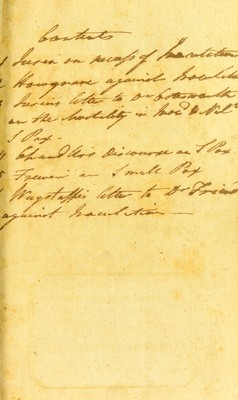 Contents
1 Jurin on success of Inoculation
2 Howgrave against Inoculation
3 Jurins letter to Dr Cotesworth
on the Mortality in Inocd & Natl
S Pox -
4 Chandler's Discourse on S Pox
5 Frewin on Small Pox
6 Wagstaffes letter to Dr Friend
against Inoculation -